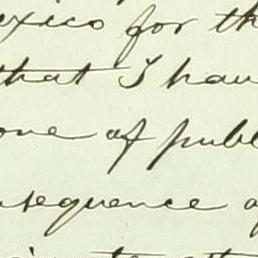 exico for th
that I hav
one of publ
nsequence o